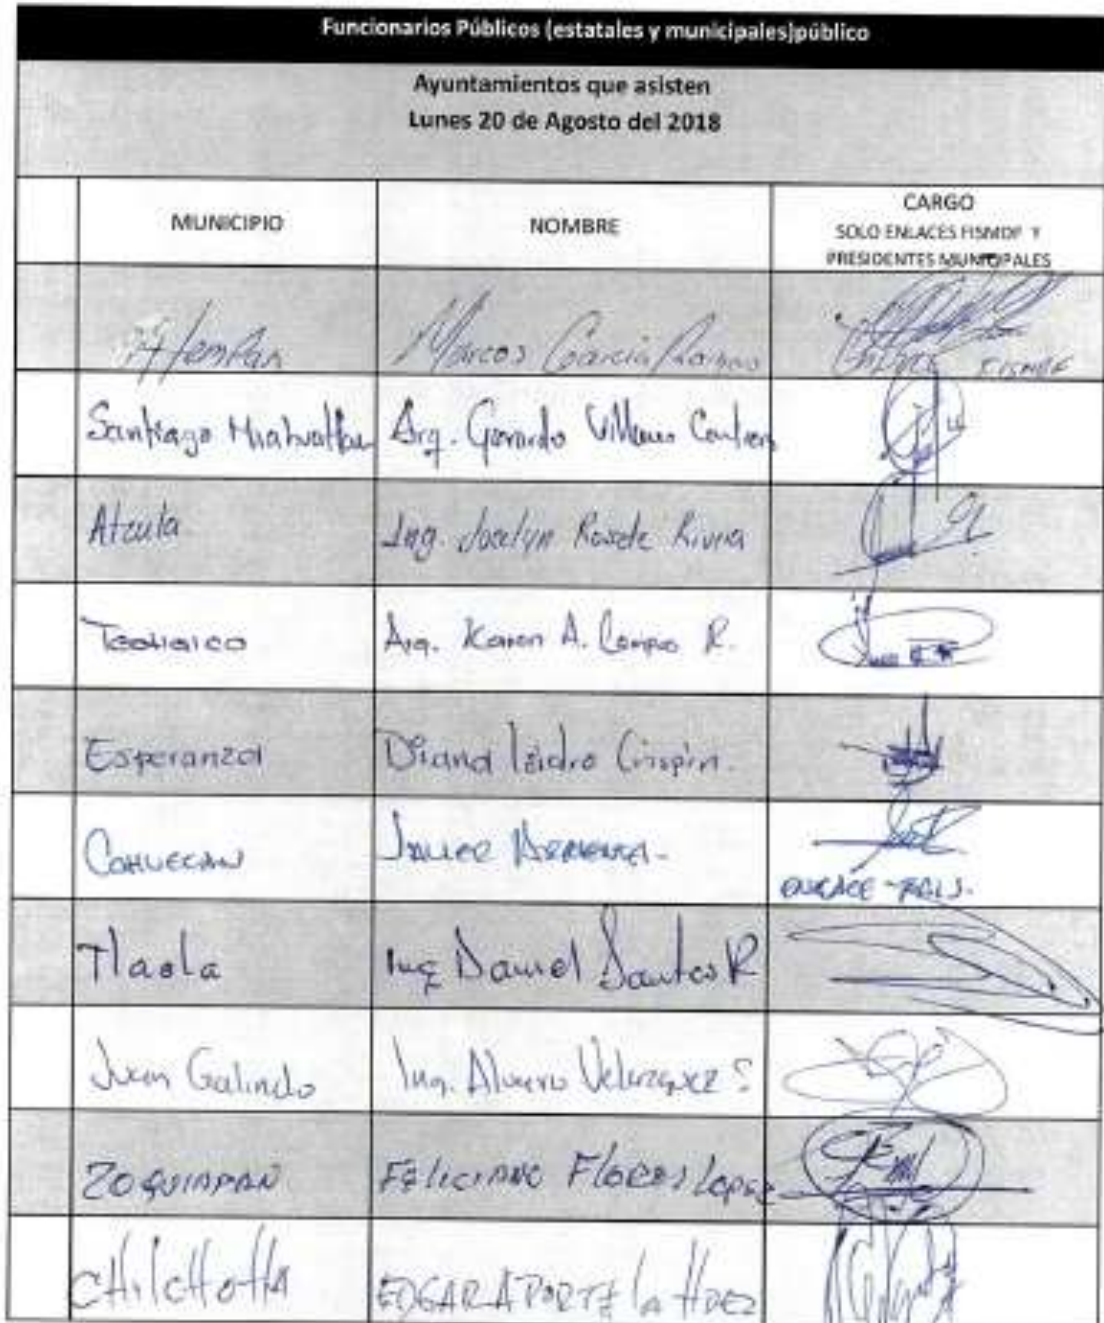 Funcionarios Públicos (estatales y municipales)público
Ayuntamientos que asisten
Lunes 20 de Agosto del 2018
MUNICIPIO NOMBRE CARGO
SOLO ENLACES FISMDF Y
PRESIDENTES MUNICIPALES
Atempan Marcos García Enlace FISMDF
Santiago Miahuatlan Arq. Gerardo
Atzala Ing. Jocelyn Rosete Rivera
Karen A. Campos R.
Esperanza Diana Isidro Crispin.
COHUECAN JAVIER ENLACE
Tlaola Ing Daniel Santos R
Juan Galindo Ing. Alvaro Velazquez S
ZOQUIAPAN FELICIANO FLORES LOPEZ
CHILCHOTLA EDGAR APORTELA HDEZ